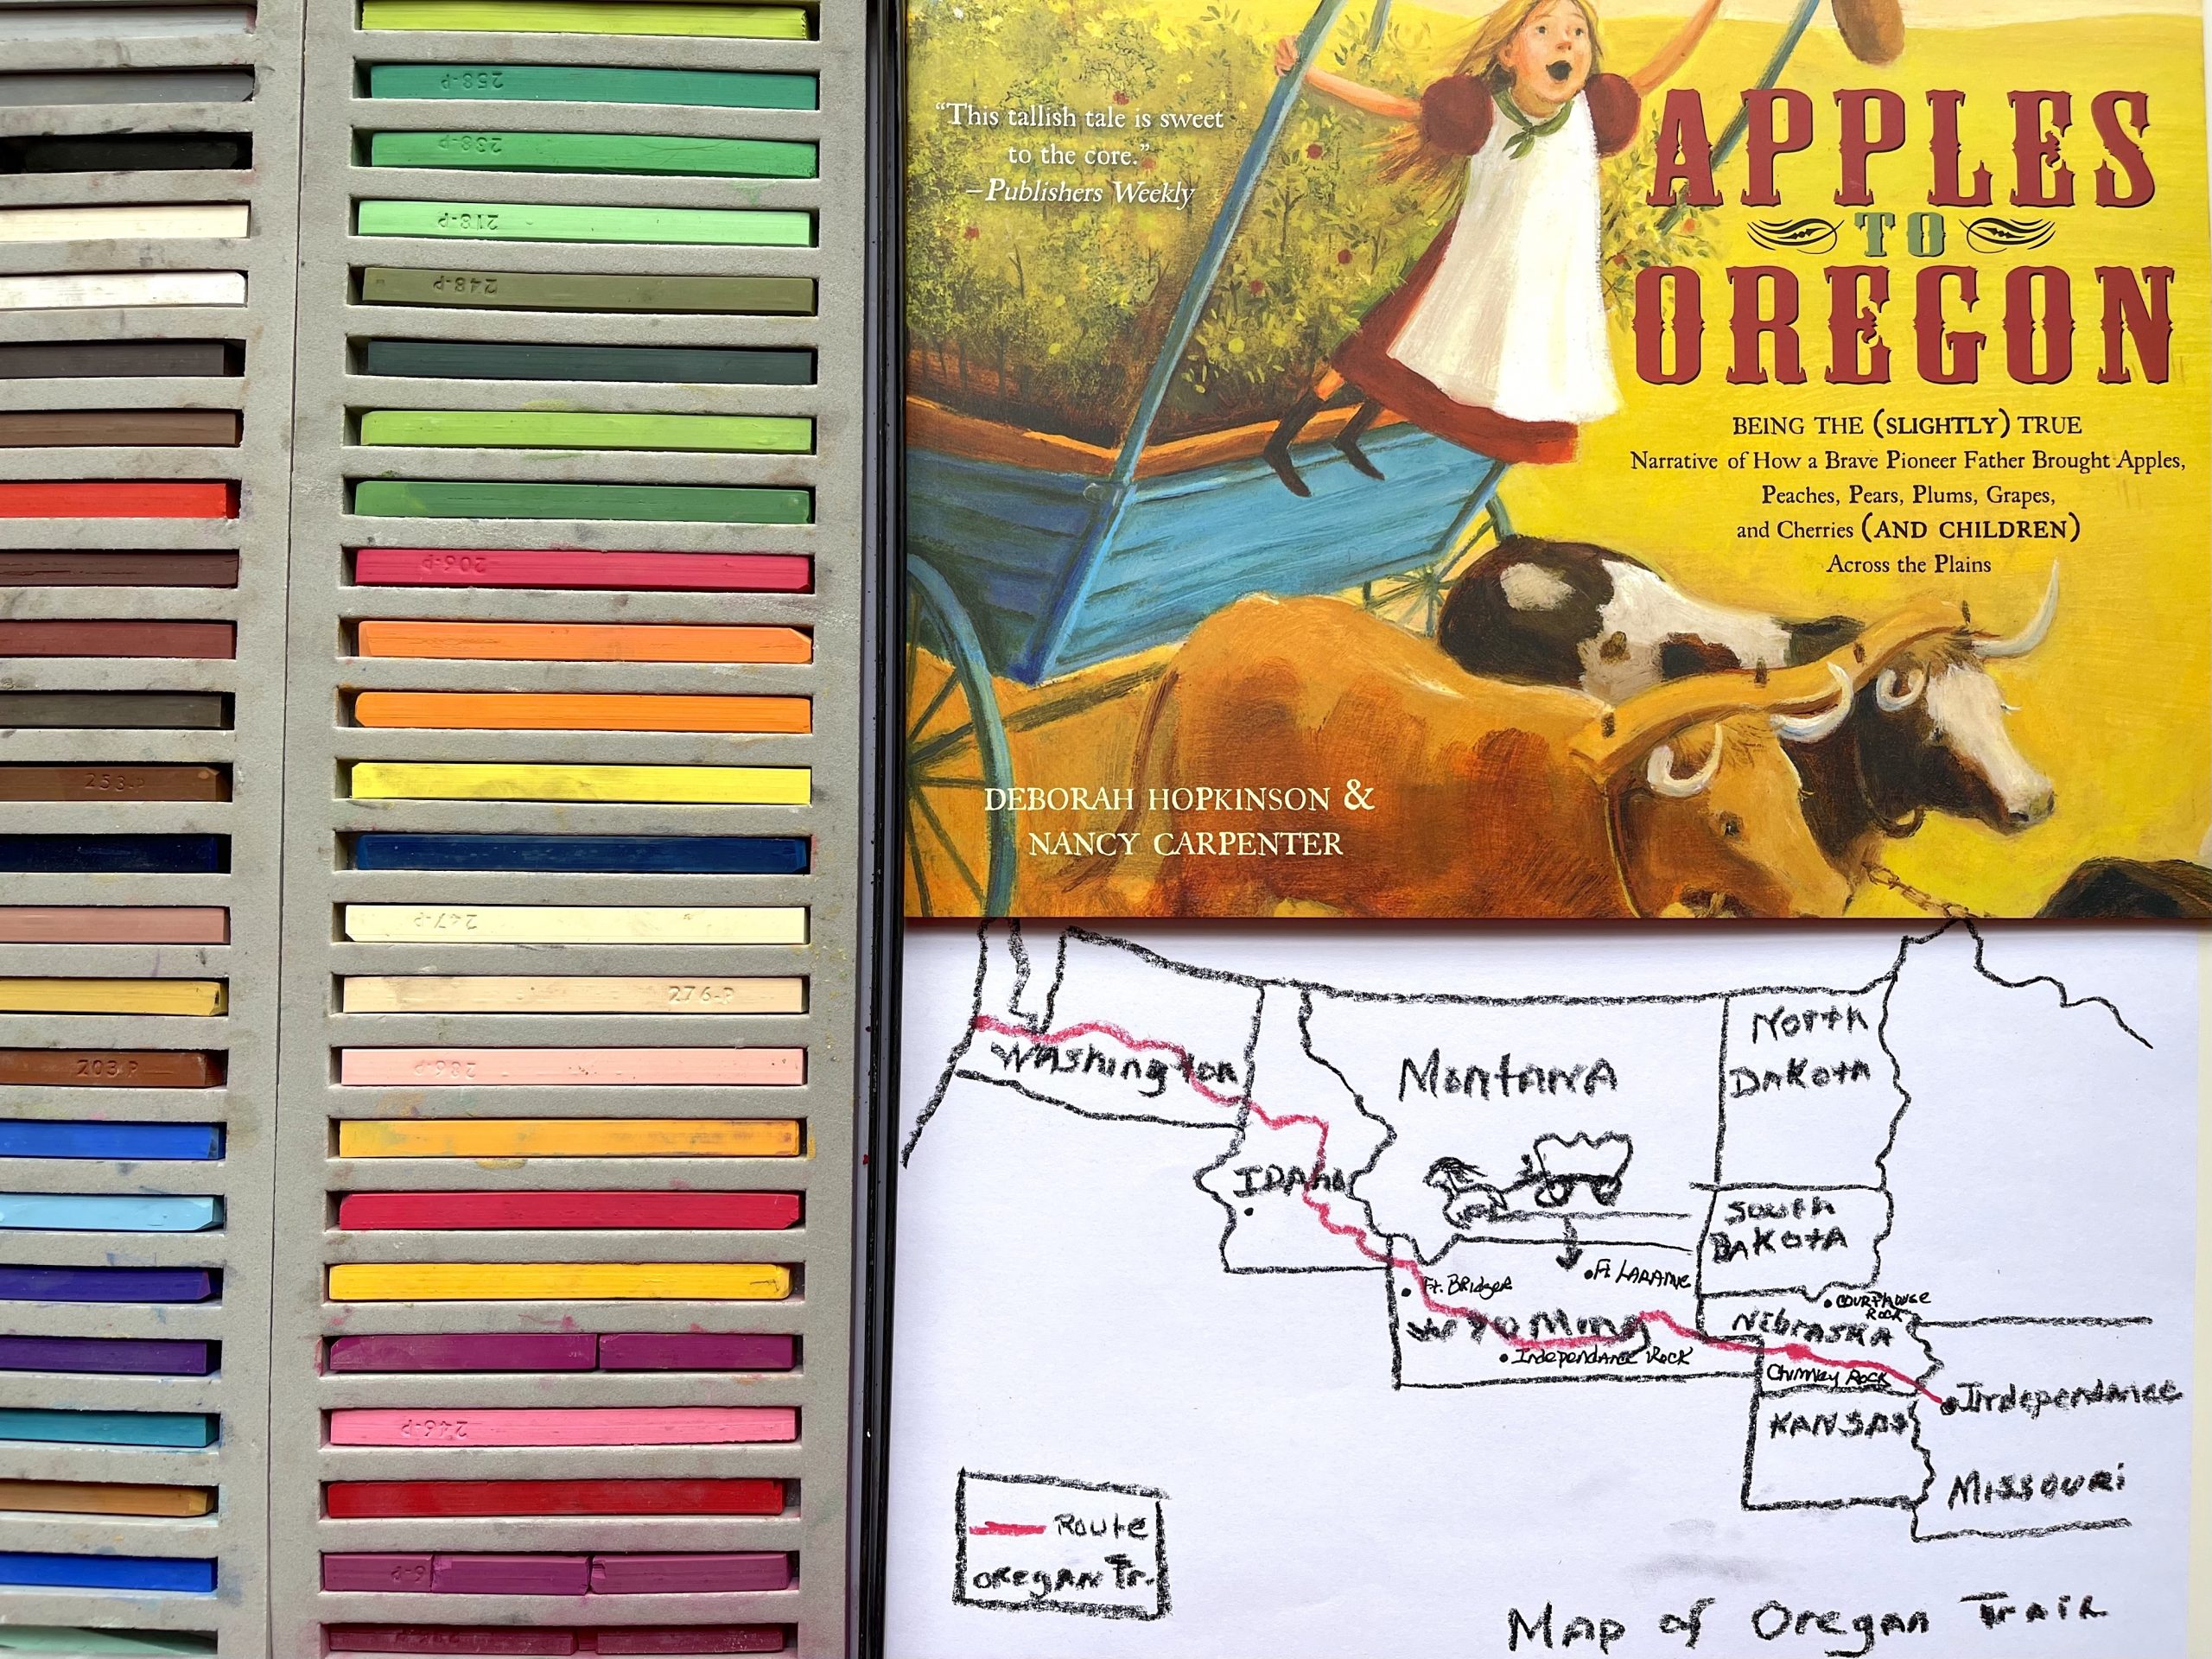 258-P
238-P
218-P
248-P
206-P
253-P
247-P
276-P
203-P
286-P
246-P
6-P
"This tallish tale is sweet
to the core."
—Publishers Weekly
APPLES
TO
OREGON
BEING THE (SLIGHTLY) TRUE
Narrative of How a Brave Pioneer Father Brought Apples,
Peaches, Pears, Plums, Grapes,
and Cherries (AND CHILDREN)
Across the Plains
DEBORAH HOPKINSON &
NANCY CARPENTER
Washington
Montana
North
Dakota
Idaho
South
Dakota
Ft. Bridger
Ft Laramie
Courthouse
Rock
Wyoming
Nebraska
Independance Rock
Chimney Rock
Independance
Kansas
Missouri
Route
Oregan Tr.
Map of Oregan Trail